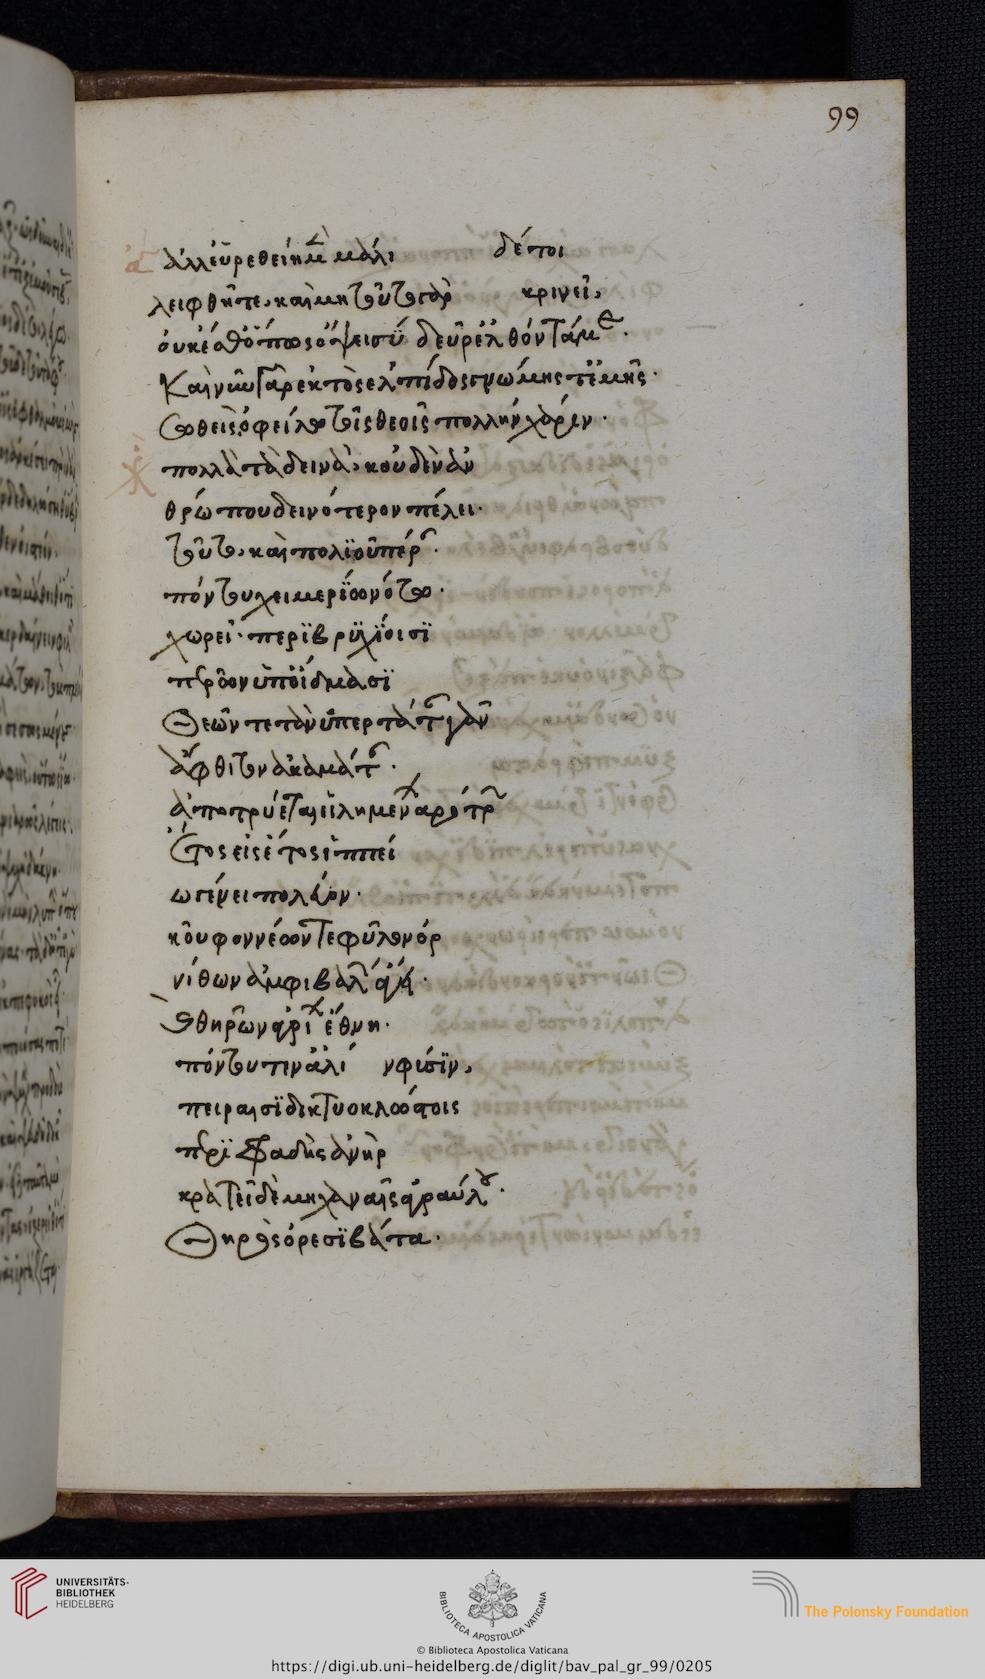 99
ἀλλ' εὑρεθείη μὲν μάλι δέ τοι
λειφθῆ τε. καὶ μὴ τοῦτο γὰρ κρινεῖ,
οὐκ ἔσθ' ὅπως ὄψει σὺ δεῦρ' ἐλθόντα με.
καὶ νῦν γὰρ ἐκτὸς ἐλπίδος γνώμης τ' ἐμῆς.
σωθεὶς ὀφείλω τοῖς θεοῖς πολλὴν χάριν.
πολλὰ τὰ δεινὰ. κοὐδὲν ἀν
θρώπου δεινότερον πέλει.
τοῦτο. καὶ πολιοῦ πέραν.
πόντου χειμερίω νότω.
χωρεῖ. περιβρυχίοισι
περῶν ὑπ' οἴδμασι
θεῶν τε τὰν ὑπερτάταν γᾶν
ἄφθιτον ἀκαμάταν.
ἀποτρύεται εἰλημένων ἀρότρων
ἔτος εἰς ἔτος ἱππεί
ω γένει πολεῦον.
κουφονέων τε φῦλον ὀρ
νίθων ἀμφιβαλὼν ἄγει.
θηρῶν ἀγρίων ἔθνη.
πόντου τιν' ἀλί ν φύσιν.
σπείραισι δικτυοκλώστοις
περιφραδὴς ἀνὴρ
κρατεῖ δὲ μηχαναῖς ἀγραύλου.
θηρὸς ὀρεσιβάτα.
UNIVERSITÄTS-
BIBLIOTHEK
HEIDELBERG
BIBLIOTECA APOSTOLICA VATICANA
The Polonsky Foundation
© Biblioteca Apostolica Vaticana
https://digi.ub.uni-heidelberg.de/diglit/bav_pal_gr_99/0205